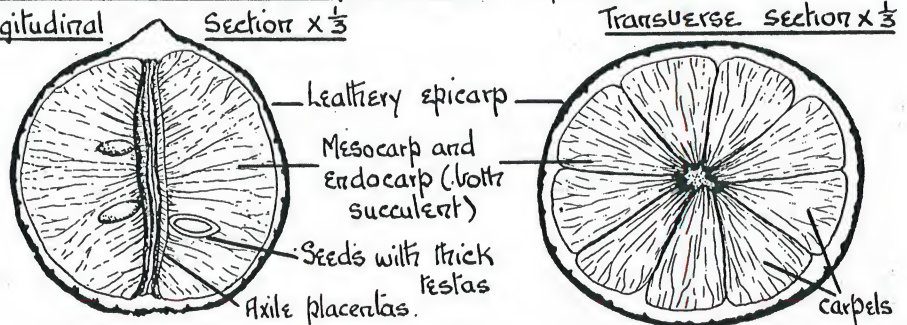 gitudinal Section x 1/3
Transverse section x 1/3
Leathery epicarp
Mesocarp and
endocarp (both
succulent)
Seeds with thick
testas
Axile placentas.
carpels